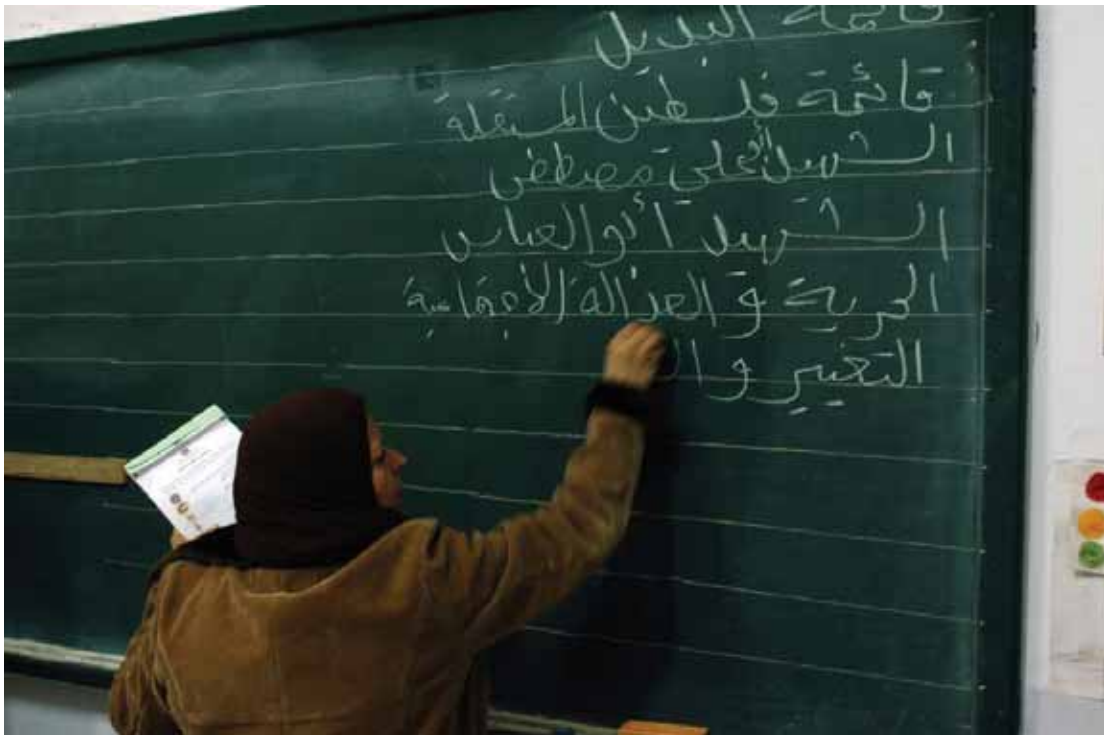 قائمة البديل
قائمة فلسطين المستقلة
الشهيد أبو علي مصطفى
الشهيد أبو العباس
الحرية و العدالة الاجتماعية
التغيير و